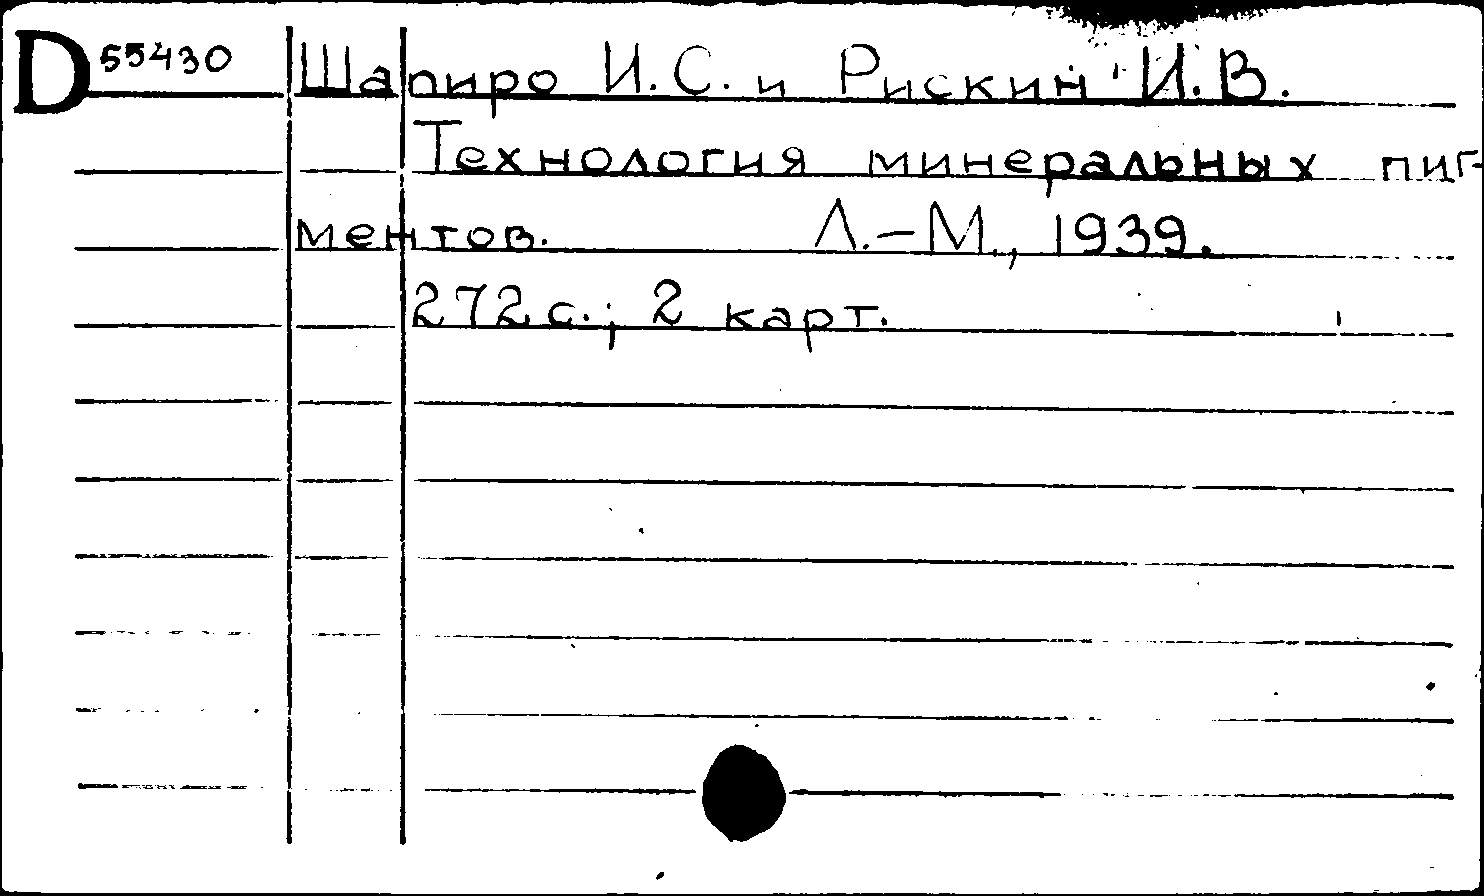 D 55430 Шапиро И.С. и Рискин И.В.
Технология минеральных пиг-
ментов. Л.-М., 1939.
272 с.; 2 карт.